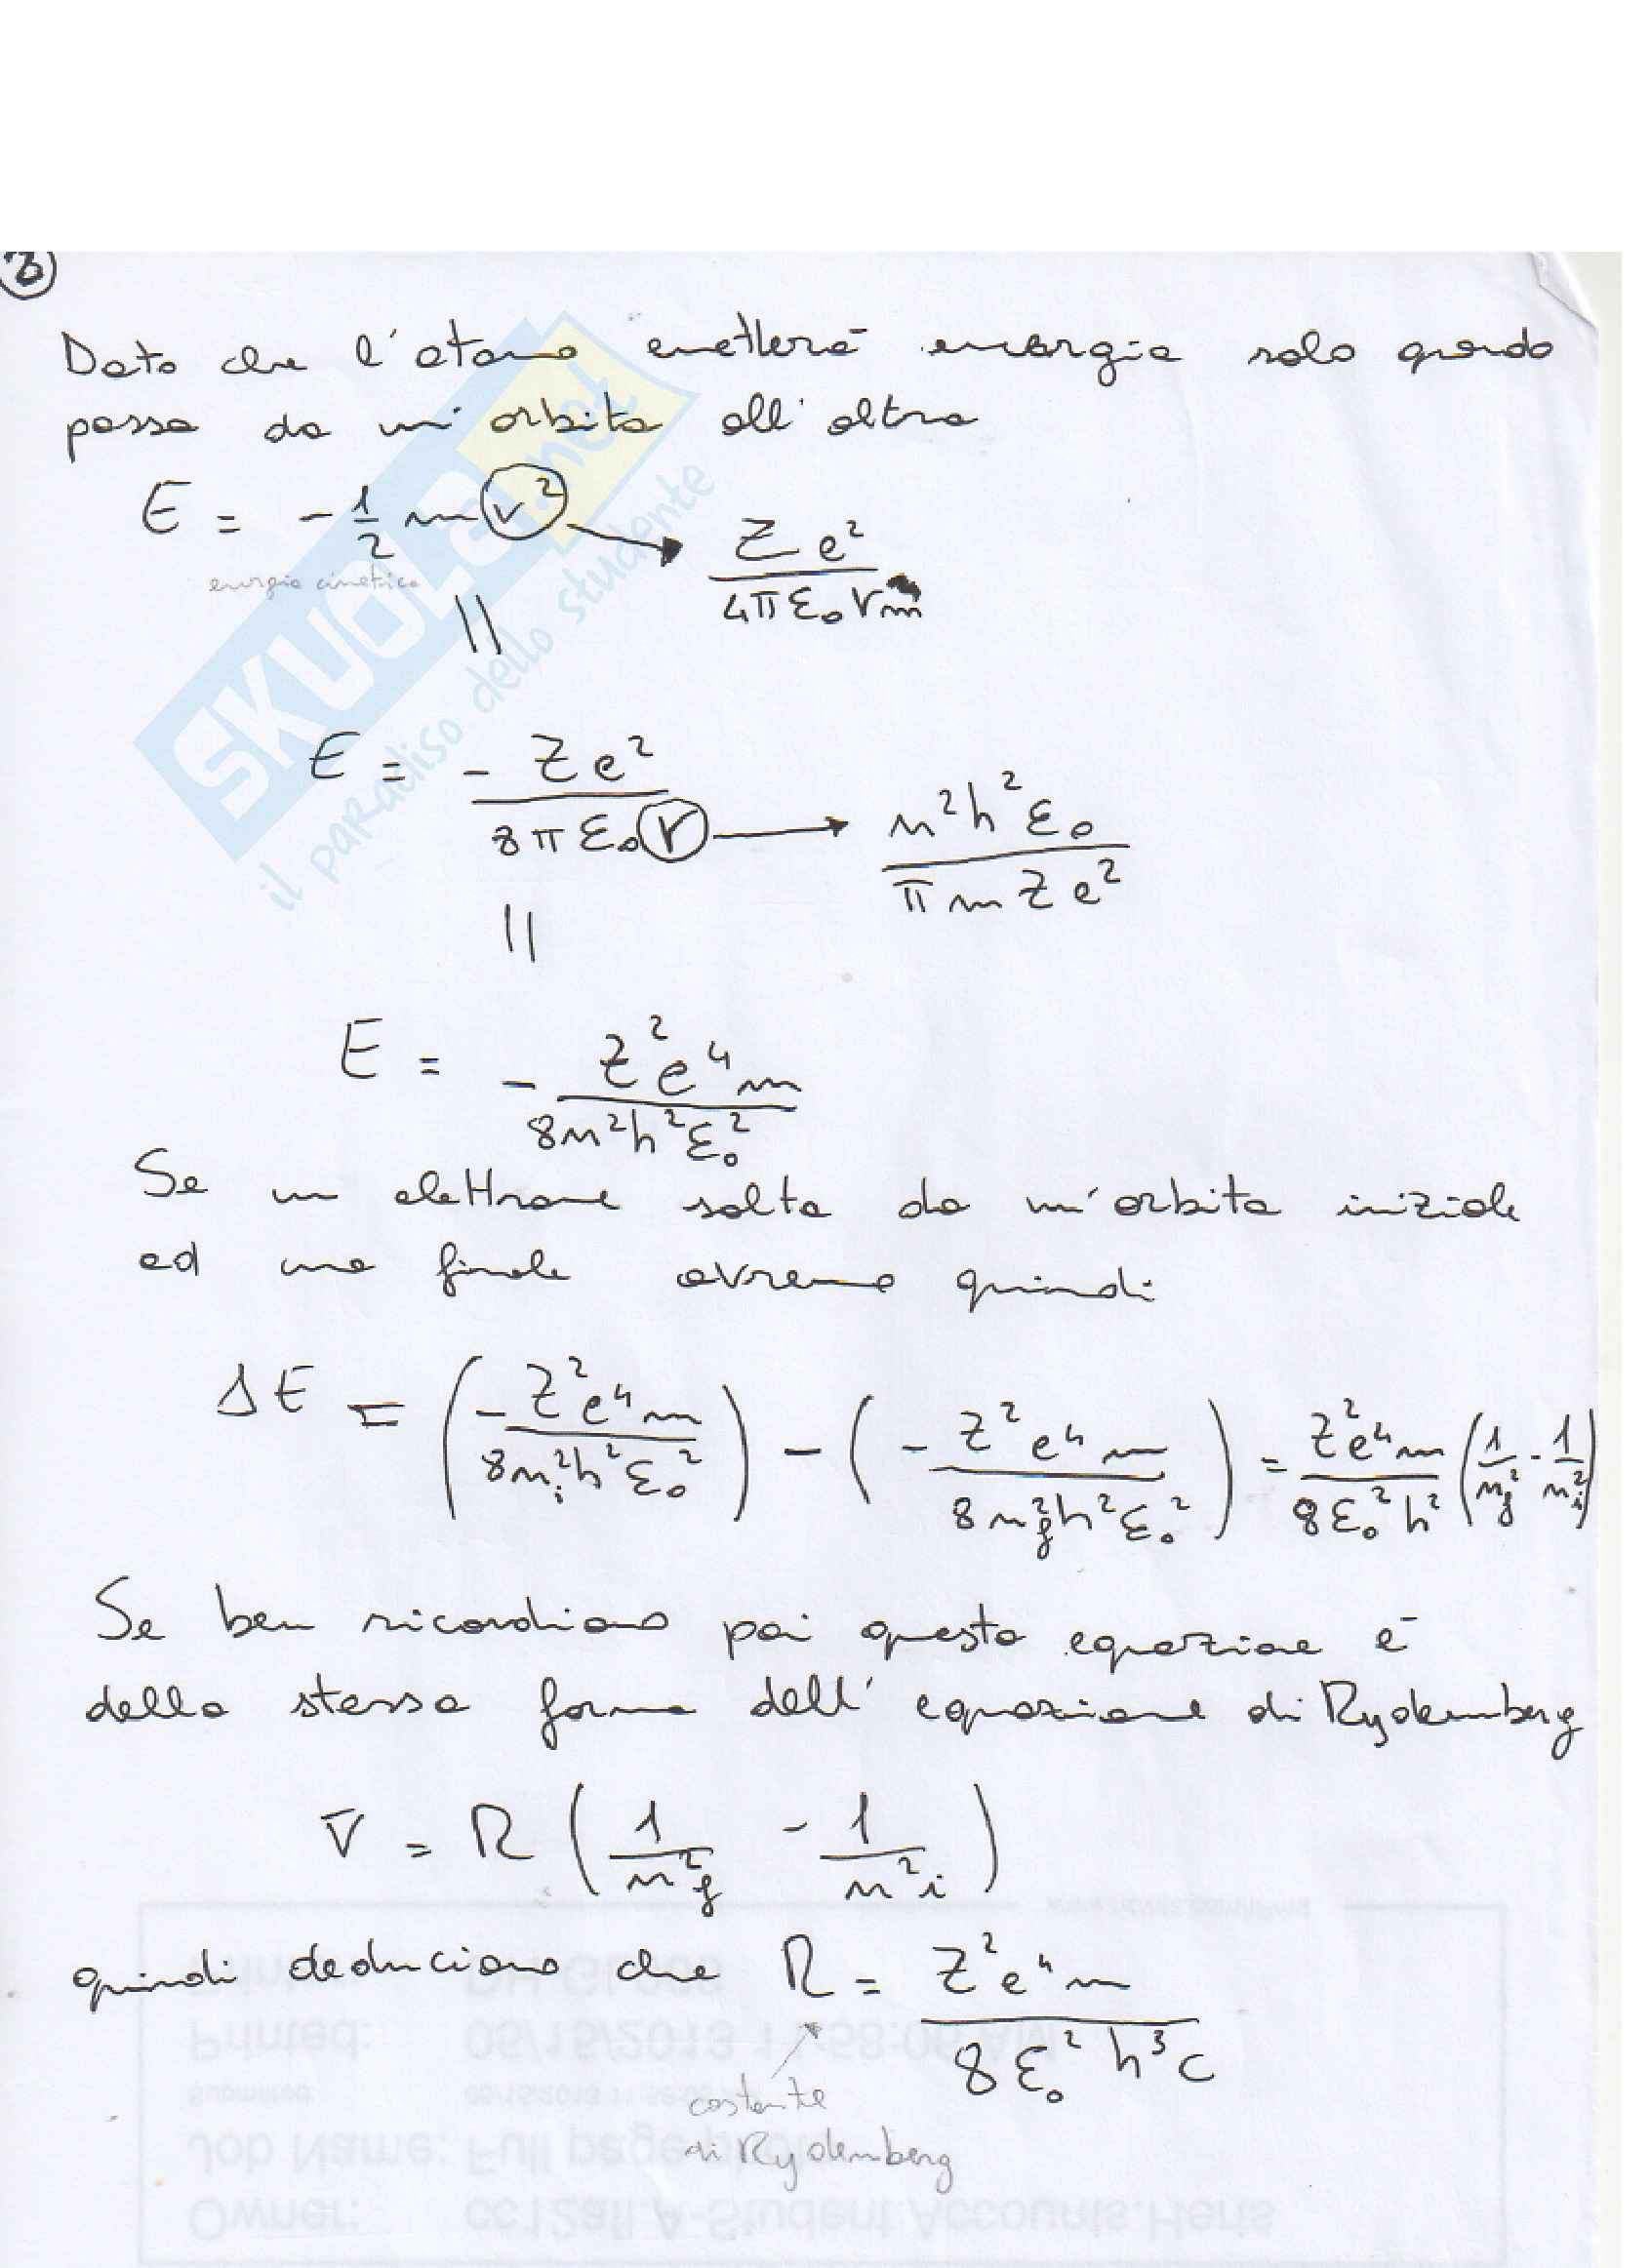 3
Dato che l'atomo emetterà energia solo quando
passa da un'orbita all'altra
E = - 1/2 m v² → Ze² / 4πε₀rm
energia cinetica
||
E = - Ze² / 8πε₀r → n²h²ε₀ / πmZe²
||
E = - Z²e⁴m / 8n²h²ε₀²
Se un elettrone salta da un'orbita iniziale
ad una finale avremo quindi
ΔE = (- Z²e⁴m / 8nᵢ²h²ε₀²) - (- Z²e⁴m / 8n_f²h²ε₀²) = Z²e⁴m / 8ε₀²h² (1/n_f² - 1/nᵢ²)
Se ben ricordiamo poi questa equazione è
della stessa forma dell'equazione di Rydemberg
ν̄ = R (1/n²_f - 1/n²ᵢ)
quindi deduciamo che R = Z²e⁴m / 8ε₀²h³c
costante
di Rydemberg
SKUOLA.net
il paradiso dello studente
Printed: 05/15/2013 11:58:06 AM
Job Name: Full page
Owner: cc12afl.A-Student.Accounts.Herts